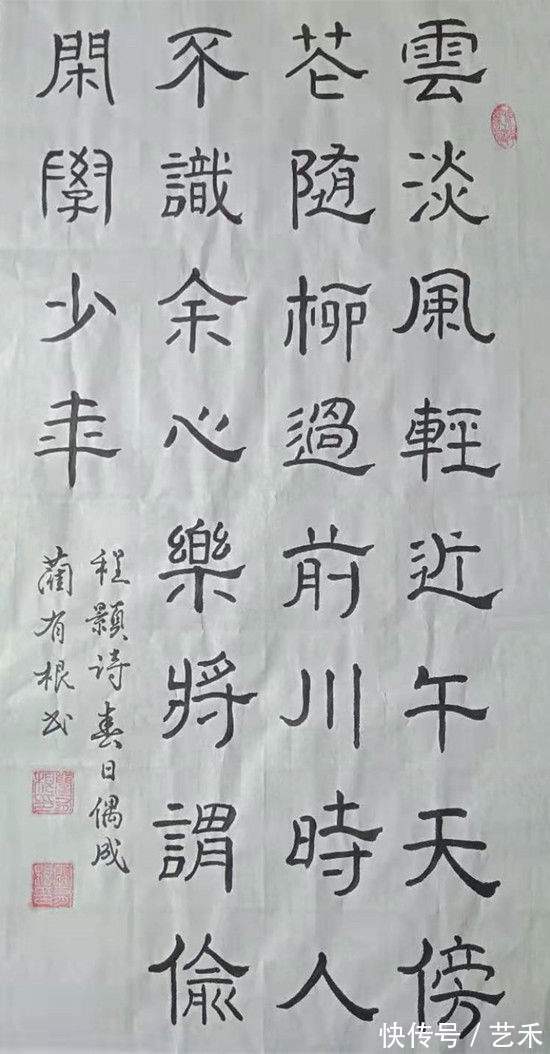 雲淡風輕近午天傍
花随柳過前川時人
不識余心樂將謂偷
閑學少年
程顥诗春日偶成
蔺有根书
快传号 / 艺禾